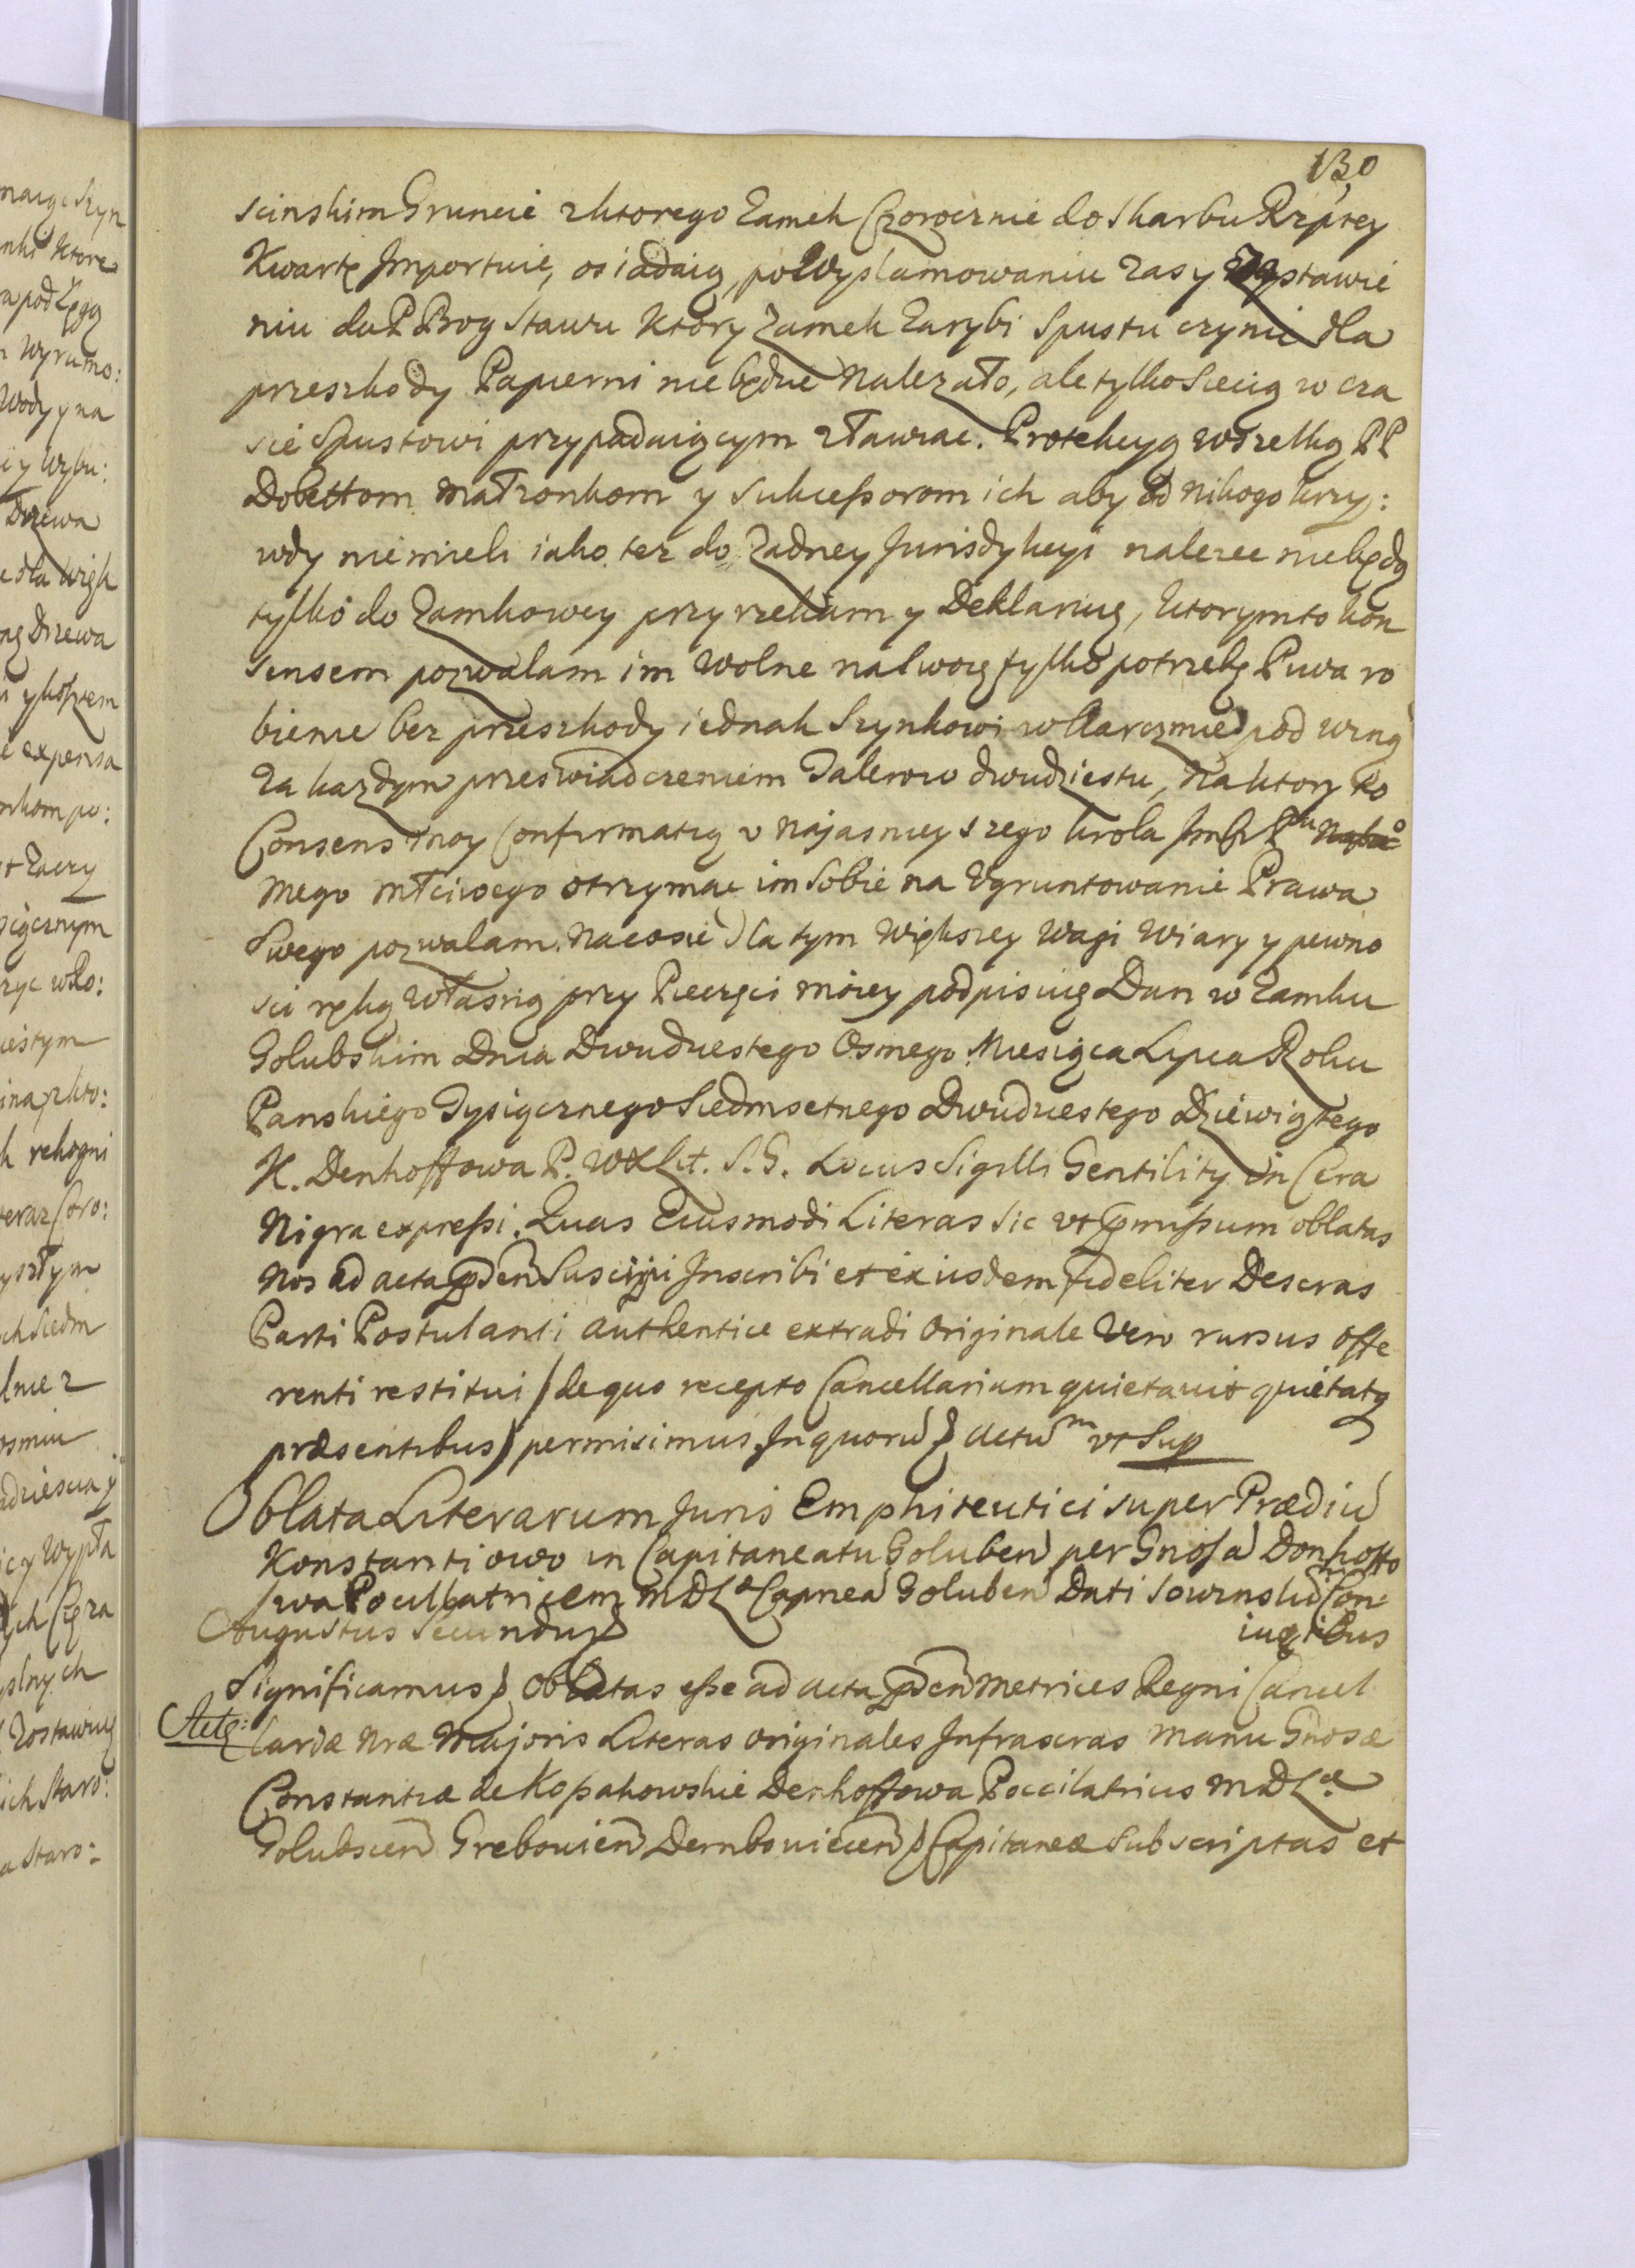 130
scinskim Gruncie z ktorego Zamek Czorocznie do Skarbu Rzptey
Kwartę Importuie, osiadaią, po Wyslamowaniu zas y stawie
niu da P Bog Stawu ktory Zamek Zarybi Spustu czynic dla
przeszkody Papierni nie będzie Nalezało, ale tylko Siecią w cza
sie Spustowi przypadaiącym zławiac. Protekcyą wszelką PP
Dobettom Małzonkom y Sukcessorom ich aby od nikogo krzy:
wdy niemieli iako tez do Zadney Jurisdykcyi nalezec niebędą
tylko do Zamkowey przyrzekam y Deklaruię, ktorymto kon
sensem pozwalam im Wolne na Swoię tylko potrzebę Piwa ro
bienie bez przeszkody iednak Szynkowi w Karczmie pod winą
Za kazdym przeswiadczeniem Talerow dwudziestu, Na ktory to
Consens moy Confirmatią v Najasnieyszego Krola Jm
Mego Młciwego otrzymac im Sobie na Vgruntowanie Prawa
Swego pozwalam. Na co sie dla tym Większey Wagi Wiary y pewno
sci ręką Własną przy Pieczęci moiey podpisuię Dan w Zamku
Golubskim Dnia Dwudziestego Osmego Miesiąca Lipca Roku
Panskiego Tysiącznego Siedmsetnego Dwudziestego Dziewiątego
K. Denhoffowa P. W X Lit. S. G. Locus Sigilli Gentility in Cera
Nigra expressi. Quas Eiusmodi Literas sic vt pmissum oblatas
Nos ad acta pden Suscipi Inscribi et ex iisdem fideliter Descras
Parti Postulanti authentice extradi Originale Vero rursus offe
renti restitui / de quo recepto Cancellariam quietauit quietatq
præsentibus / permisimus. In quoru actum vt Sup
Oblata Literarum Juris Emphiteutici super Prædiu
Konstantiowo in Capitaneatu Goluben per Gnosa Donhoffo
wa Pocillatricem M D L Capnea Goluben Dati Con:
iugibus
Augustus Secundus
Significamus Oblatas esse ad acta pden Metrices Regni Cancel
Actg:
lariæ Nræ Majoris Literas originales Infrascras manu Gnosæ
Constantiæ de Denhoffowa Poccilatricis M D L
Golubscen Grebouien Dembouiecen Capitaneæ Subscriptas et